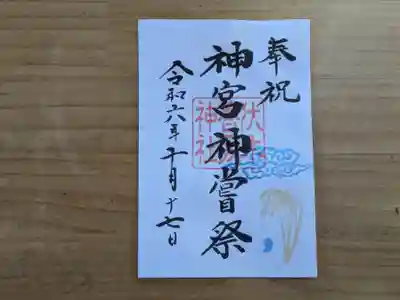 奉祝
神宮神嘗祭
令和六年十月十七日